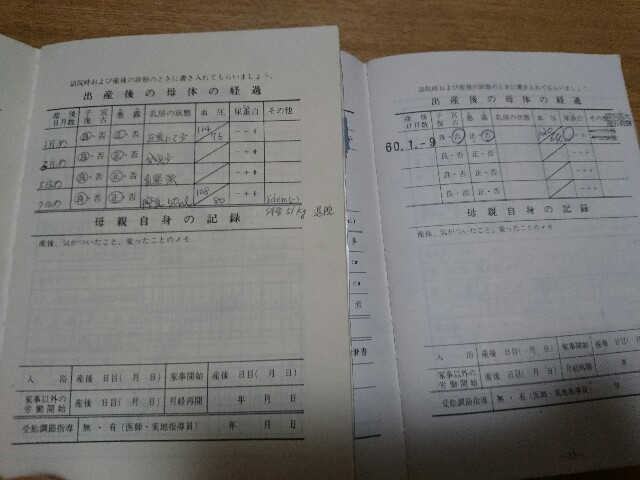 退院時および産後の診察のときに書き入れてもらいましょう。
出産後の母体の経過
産後日月数 子宮復古 悪露 乳房の状態 血圧 尿蛋白 その他
1日め 良・否 正・否 114/75 − + ++
3日め 良・否 正・否 − + ++
5日め 良・否 正・否 − + ++
7日め 良・否 正・否 108/80 − + ++ Edem(-)
51kg 退院
母親自身の記録
産後、気がついたこと、変ったことのメモ
入浴 産後 日目( 月 日) 家事開始 産後 日目( 月 日)
家事以外の労働開始 産後 日目( 月 日) 月経再開 年 月 日
受胎調節指導 無・有(医師・実地指導員) 年 月 日
退院時および産後の診察のときに書き入れてもらいましょう。
出産後の母体の経過
産後日月数 子宮復古 悪露 乳房の状態 血圧 尿蛋白 その他
60.1.-9 良・否 正・否
良・否 正・否
良・否 正・否
良・否 正・否
母親自身の記録
産後、気がついたこと、変ったことのメモ
入浴 産後 日目( 月 日) 家事開始 産後 日目( 月 日)
家事以外の労働開始 産後 日目( 月 日) 月経再開 年 月 日
受胎調節指導 無・有(医師・実地指導員) 年 月 日